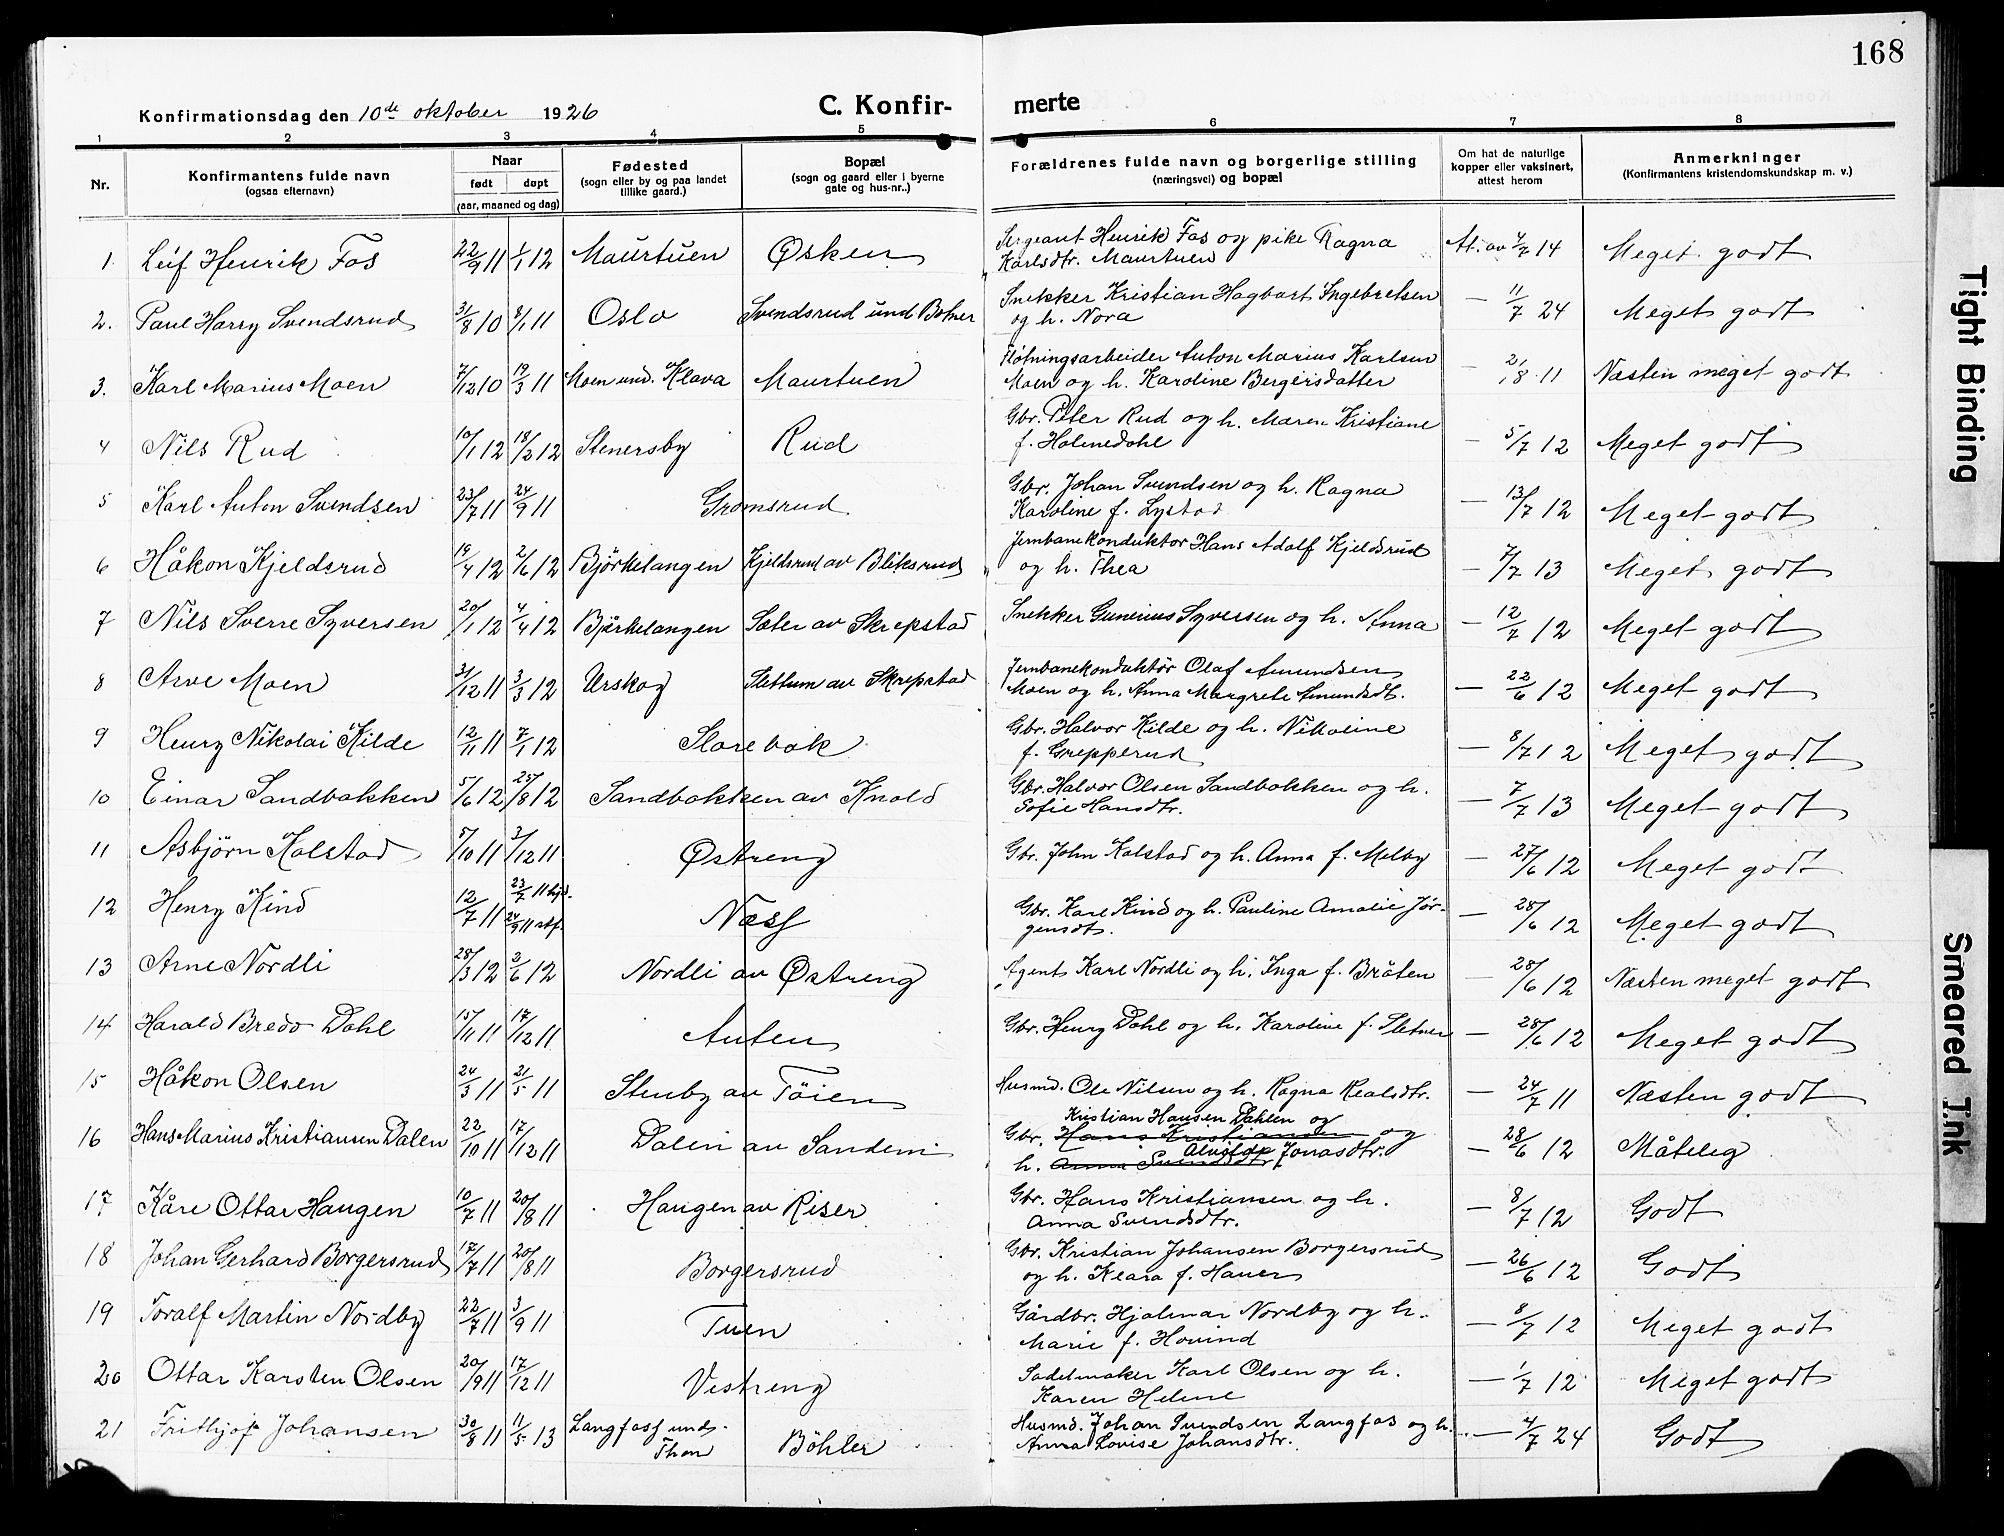 168
Konfirmationsdag den 10de oktober 1926
C. Konfir-
merte
1 2 3 4 5 6 7 8
Nr.
Konfirmantens fulde navn
(ogsaa efternavn)
Naar
født døpt
(aar, maaned og dag)
Fødested
(sogn eller by og paa landet
tillike gaard.)
Bopæl
(sogn og gaard eller i byerne
gate og hus-nr..)
Forældrenes fulde navn og borgerlige stilling
(næringsvei) og bopæl
Om hat de naturlige
kopper eller vaksinert,
attest herom
Anmerkninger
(Konfirmantens kristendomskundskap m. v.)
1. Leif Henrik Fos 22/9 11 1/1 12 Maurtuen Øsken Sergeant Henrik Fos og pike Ragna
Karlsdtr. Maurtuen At. av 4/7 14 Meget godt
2. Paul Harry Svendsrud 31/8 10 8/1 11 Oslo Svendsrud und Botner Snekker Kristian Hagbart Ingebretsen
og h. Nora — 11/7 24 Meget godt
3. Karl Marius Moen 7/12 10 19/3 11 Moen und. Klava Maurtuen Fløtningsarbeider Anton Marius Karlsen
Moen og h. Karoline Bergersdatter — 2/8 11 Næsten meget godt
4 Nils Rud 10/1 12 18/2 12 Stenersby Rud Gbr. Peter Rud og h. Maren Kristiane
f. Holmedahl — 5/7 12 Meget godt
5 Karl Anton Svendsen 23/7 11 24/9 11 Gromsrud Gbr. Johan Svendsen og h. Ragna
Karoline f. Lystad — 13/7 12 Meget godt
6 Håkon Kjeldsrud 19/4 12 2/6 12 Björkelangen Kjeldsrud av Bliksrud Jernbanekonduktor Hans Adolf Kjeldsrud
og h. Thea — 7/7 13 Meget godt
7 Nils Sverre Syversen 20/1 12 4/4 12 Bjørkelangen Sæter av Skrepstad Snekker Gunerius Syversen og h. Anna — 12/7 12 Meget godt
8 Arve Moen 31/12 11 3/3 12 Urskog Slettum av Skrepstad Jernbanekonduktør Olaf Amundsen
Moen og h. Anna Margrete Amundsdt. — 22/6 12 Meget godt
9 Henry Nikolai Kilde 12/11 11 7/1 12 Storebak Gbr. Halvor Kilde og h. Nikoline
f. Grepperud — 8/7 12 Meget godt
10 Einar Sandbakken 5/6 12 25/8 12 Sandbakken av Knold Gbr. Halvor Olsen Sandbakken og h.
Sofie Hansdtr. — 7/7 13 Meget godt
11 Asbjörn Kolstad 5/10 11 3/12 11 Østreng Gbr. John Kolstad og h. Anna f. Melby — 27/6 12 Meget godt
12 Henry Kind 12/7 11 23/7 11 hjd.
24/9 11 stf. Næss Gbr. Karl Kind og h. Pauline Amalie Jør-
gensdt. — 28/6 12 Meget godt
13 Arne Nordli 28/3 12 2/6 12 Nordli av Østreng Agent Karl Nordli og h. Inga f. Bråten — 28/6 12 Næsten meget godt
14 Harald Bredo Dahl 15/11 11 17/12 11 Auten Gbr. Henry Dahl og h. Karoline f. Sletner — 28/6 12 Meget godt
15 Håkon Olsen 24/3 11 21/5 11 Stenby av Töien Husmd. Ole Nilsen og h. Ragna Realsdtr. — 24/7 11 Næsten godt
16 Hans Marius Kristiansen Dalen 22/10 11 17/12 11 Dalen av Sandem Kristian Hansen Dahlen og
Gbr. Hans Kristiansen og
h. Anna Svendsdtr. Jonasdtr. — 28/6 12 Måtelig
17 Kåre Ottar Haugen 10/7 11 20/8 11 Haugen av Riser Gbr. Hans Kristiansen og h.
Anna Svendsdtr. — 8/7 12 Godt
18 Johan Gerhard Borgersrud 17/7 11 20/8 11 Borgersrud Gbr. Kristian Johansen Borgersrud
og h. Klara f. Hauer — 26/6 12 Godt
19 Toralf Martin Nordby 22/7 11 3/9 11 Tuen Gårdbr. Hjalmar Nordby og h.
Marie f. Hovind — 8/7 12 Meget godt
20 Ottar Karsten Olsen 20/9 11 17/12 11 Vestreng Sadelmaker Karl Olsen og h.
Karen Helene — 1/7 12 Meget godt
21 Frithjof Johansen 30/8 11 11/5 13 Langfoss und.
Thon Böhler Husmd. Johan Svendsen Langfos og h.
Anna Lovise Johansdtr. — 4/7 24 Godt
Tight Binding
Smeared Ink